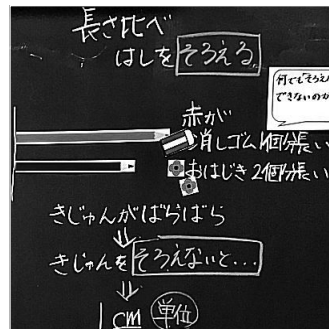 長さ比べ
はしをそろえる。
何でもそろえ
できないのか
赤が
消しゴム1個分長い
おはじき2個分長い
きじゅんがばらばら
きじゅんをそろえないと…
1cm 単位